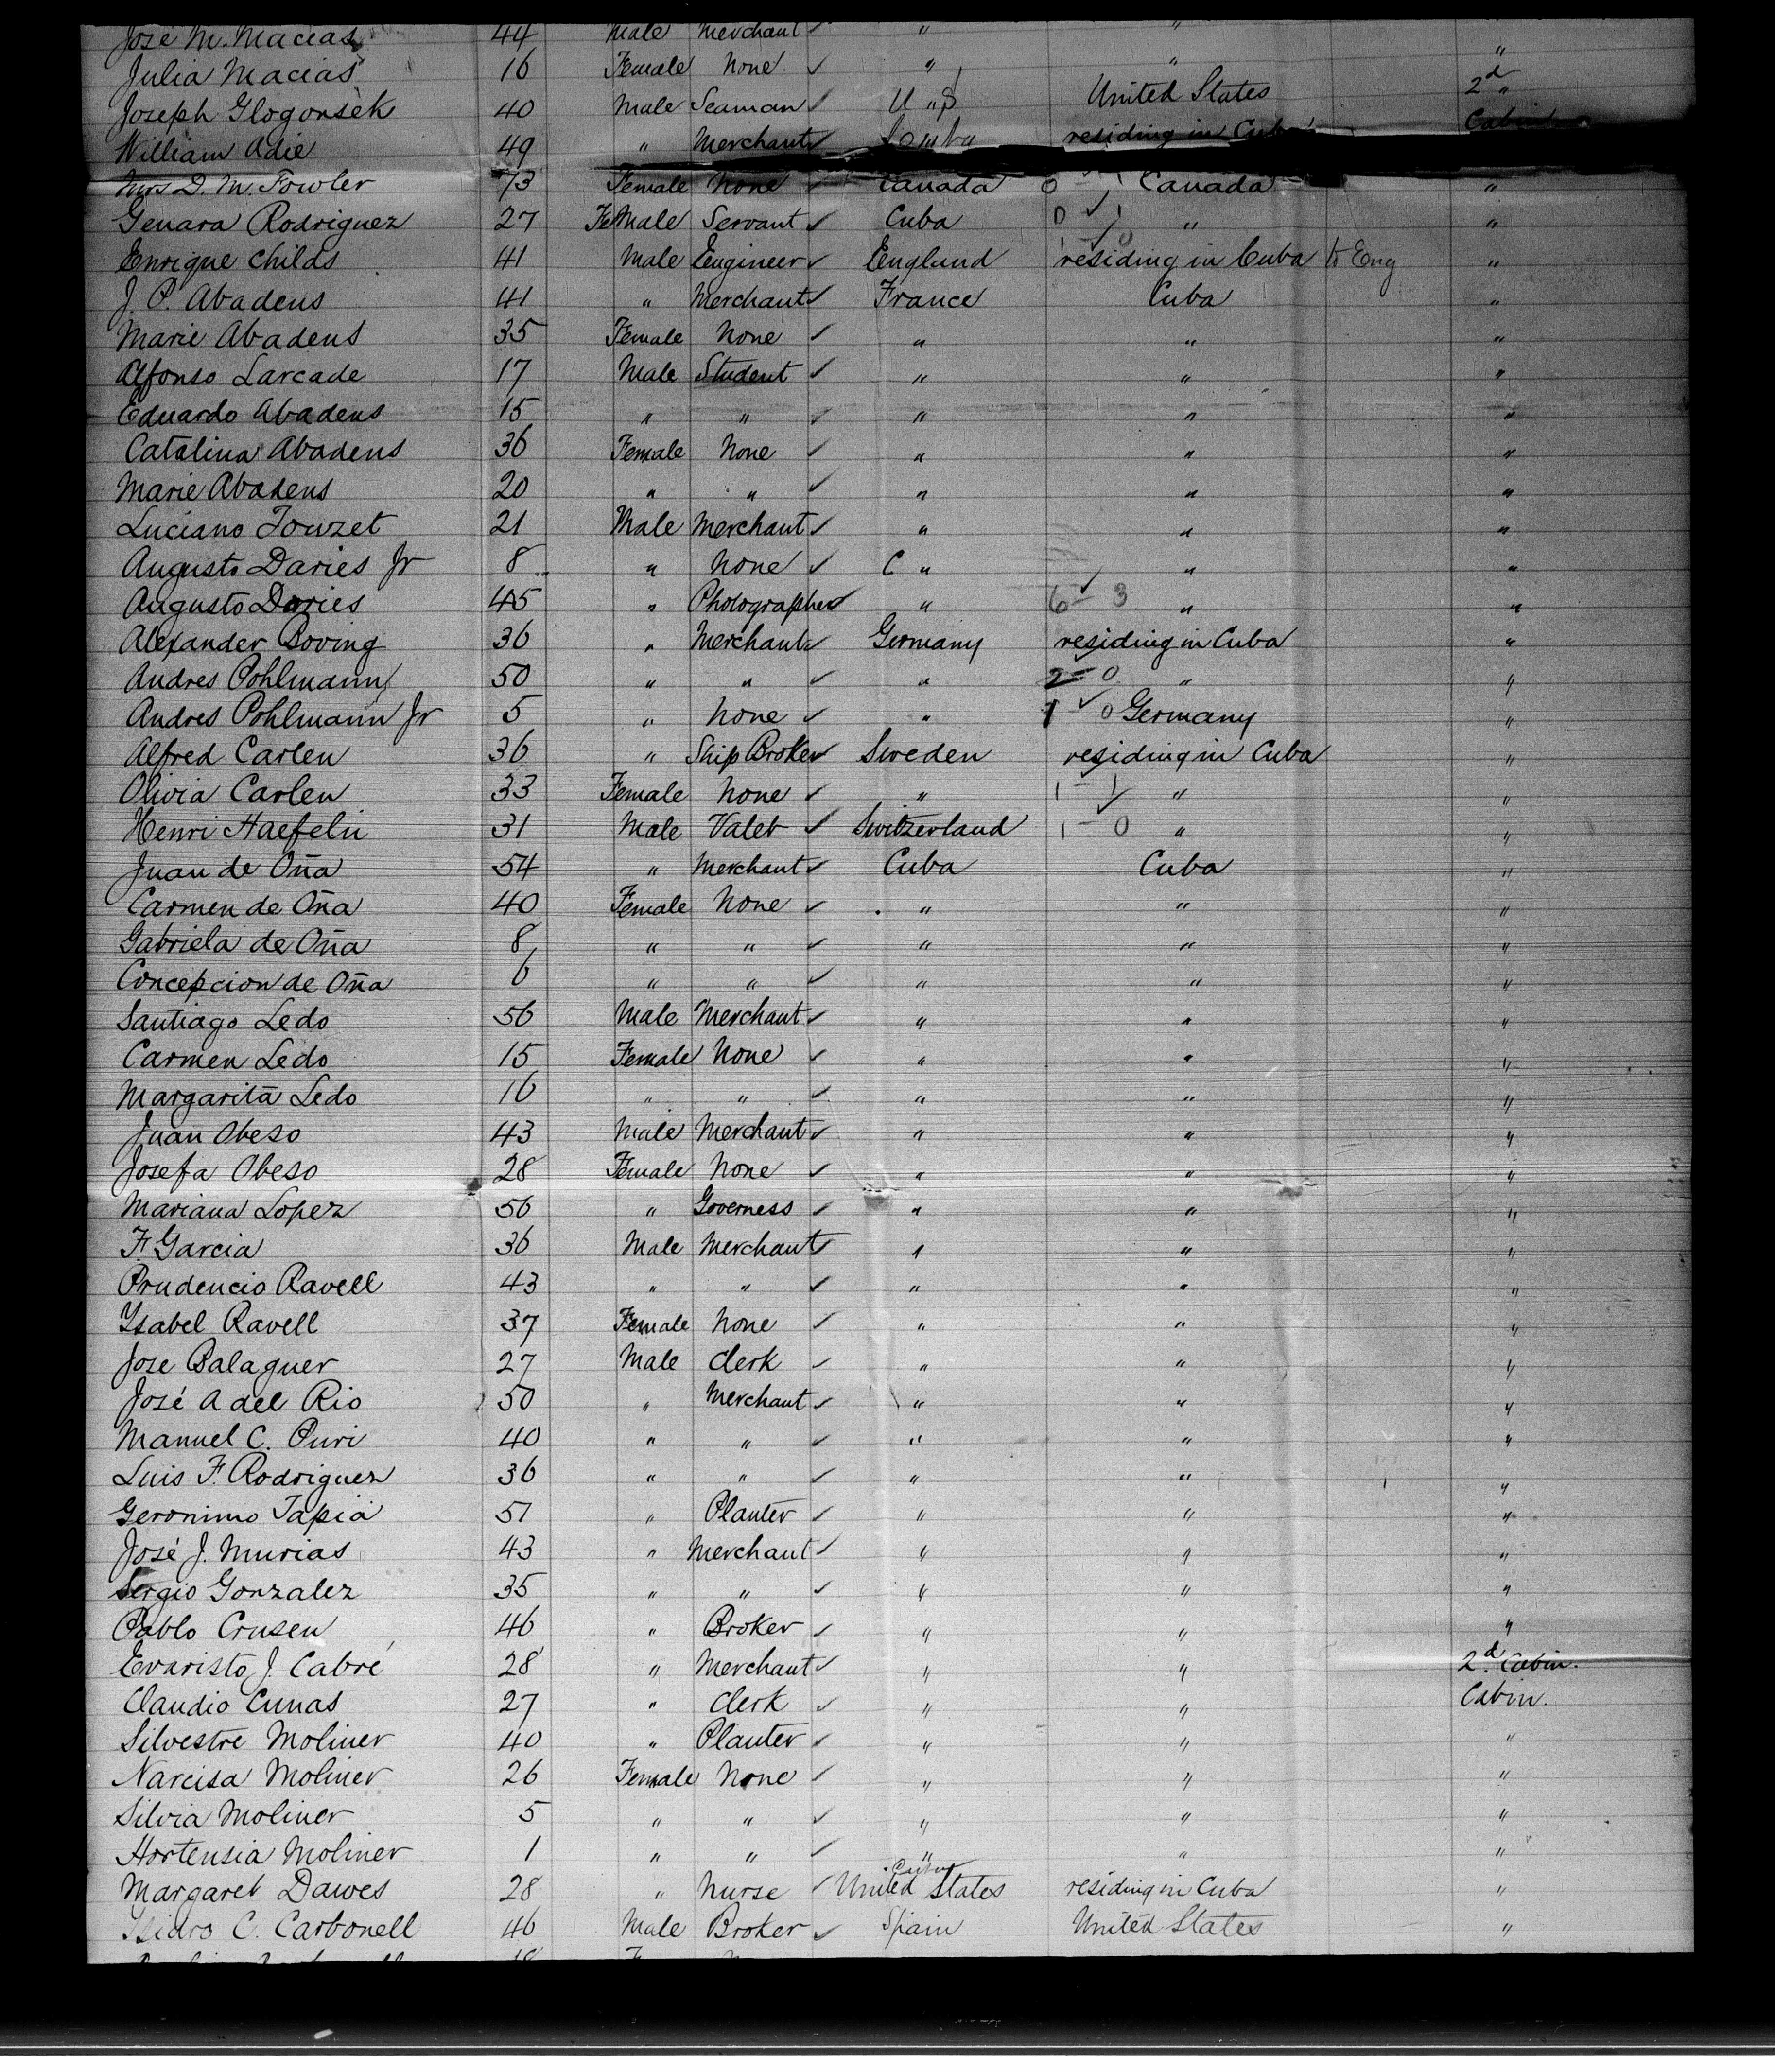 José M. Macias 44 Male Merchant ✓ " "
Julia Macias 16 Female None ✓ " " "
Joseph Glogonsek 40 Male Seaman ✓ U " S United States 2d "
William Adie 49 " Merchant ✓ residing in Cuba Cabin
Mrs D. M. Fowler 73 Female None ✓ Canada 0 - 1 Canada "
Genara Rodriguez 27 FeMale Servant ✓ Cuba 0 1 " "
Enrique Childs 41 Male Engineer ✓ England residing in Cuba to Eng "
J. P. Abadens 41 " Merchant ✓ France Cuba "
Marie Abadens 35 Female None ✓ " " "
Alfonso Larcade 17 Male Student ✓ " " "
Eduardo Abadens 15 " " ✓ " " "
Catalina Abadens 36 Female None ✓ " " "
Marie Abadens 20 " " ✓ " " "
Luciano Touzet 21 Male Merchant ✓ " " "
Augusto Daries Jr 8 " None ✓ C " " "
Augusto Daries 45 " Photographer ✓ " 6 - 3 " "
Alexander Boving 36 " Merchant ✓ Germany residing in Cuba "
Andres Pohlmann 50 " " ✓ " 2 - 0 " "
Andres Pohlmann Jr 5 " None ✓ " 1 - 0 Germany "
Alfred Carlen 36 " Ship Broker ✓ Sweden residing in Cuba "
Olivia Carlen 33 Female None ✓ " 1 - 1 " "
Henri Haefelin 31 Male Valet ✓ Switzerland 1 - 0 " "
Juan de Oña 54 " Merchant ✓ Cuba Cuba "
Carmen de Oña 40 Female None ✓ " " "
Gabriela de Oña 8 " " ✓ " " "
Concepcion de Oña 6 " " ✓ " " "
Santiago Ledo 56 Male Merchant ✓ " " "
Carmen Ledo 15 Female None ✓ " " "
Margarita Ledo 16 " " ✓ " " "
Juan Obeso 43 Male Merchant ✓ " " "
Josefa Obeso 28 Female None ✓ " " "
Mariana Lopez 56 " Governess ✓ " " "
F. Garcia 36 Male Merchant ✓ " " "
Prudencio Ravell 43 " " ✓ " " "
Ysabel Ravell 37 Female None ✓ " " "
Jose Balaguer 27 Male Clerk ✓ " " "
José A del Rio 50 " Merchant ✓ " " "
Manuel C. Puri 40 " " ✓ " " "
Luis F. Rodriguez 36 " " ✓ " " "
Geronimo Tapia 51 " Planter ✓ " " "
José J. Murias 43 " Merchant ✓ " " "
Sergio Gonzalez 35 " " ✓ " " "
Pablo Crusen 46 " Broker ✓ " " "
Evaristo J. Cabré 28 " Merchant ✓ " " 2d. Cabin.
Claudio Cunas 27 " Clerk ✓ " " Cabin.
Silvestre Moliner 40 " Planter ✓ " " "
Narcisa Moliner 26 Female None ✓ " " "
Silvia Moliner 5 " " ✓ " " "
Hortensia Moliner 1 " " ✓ " " "
Margaret Dawes 28 " Nurse ✓ United States residing in Cuba "
Isidro C. Carbonell 46 Male Broker ✓ Spain United States "